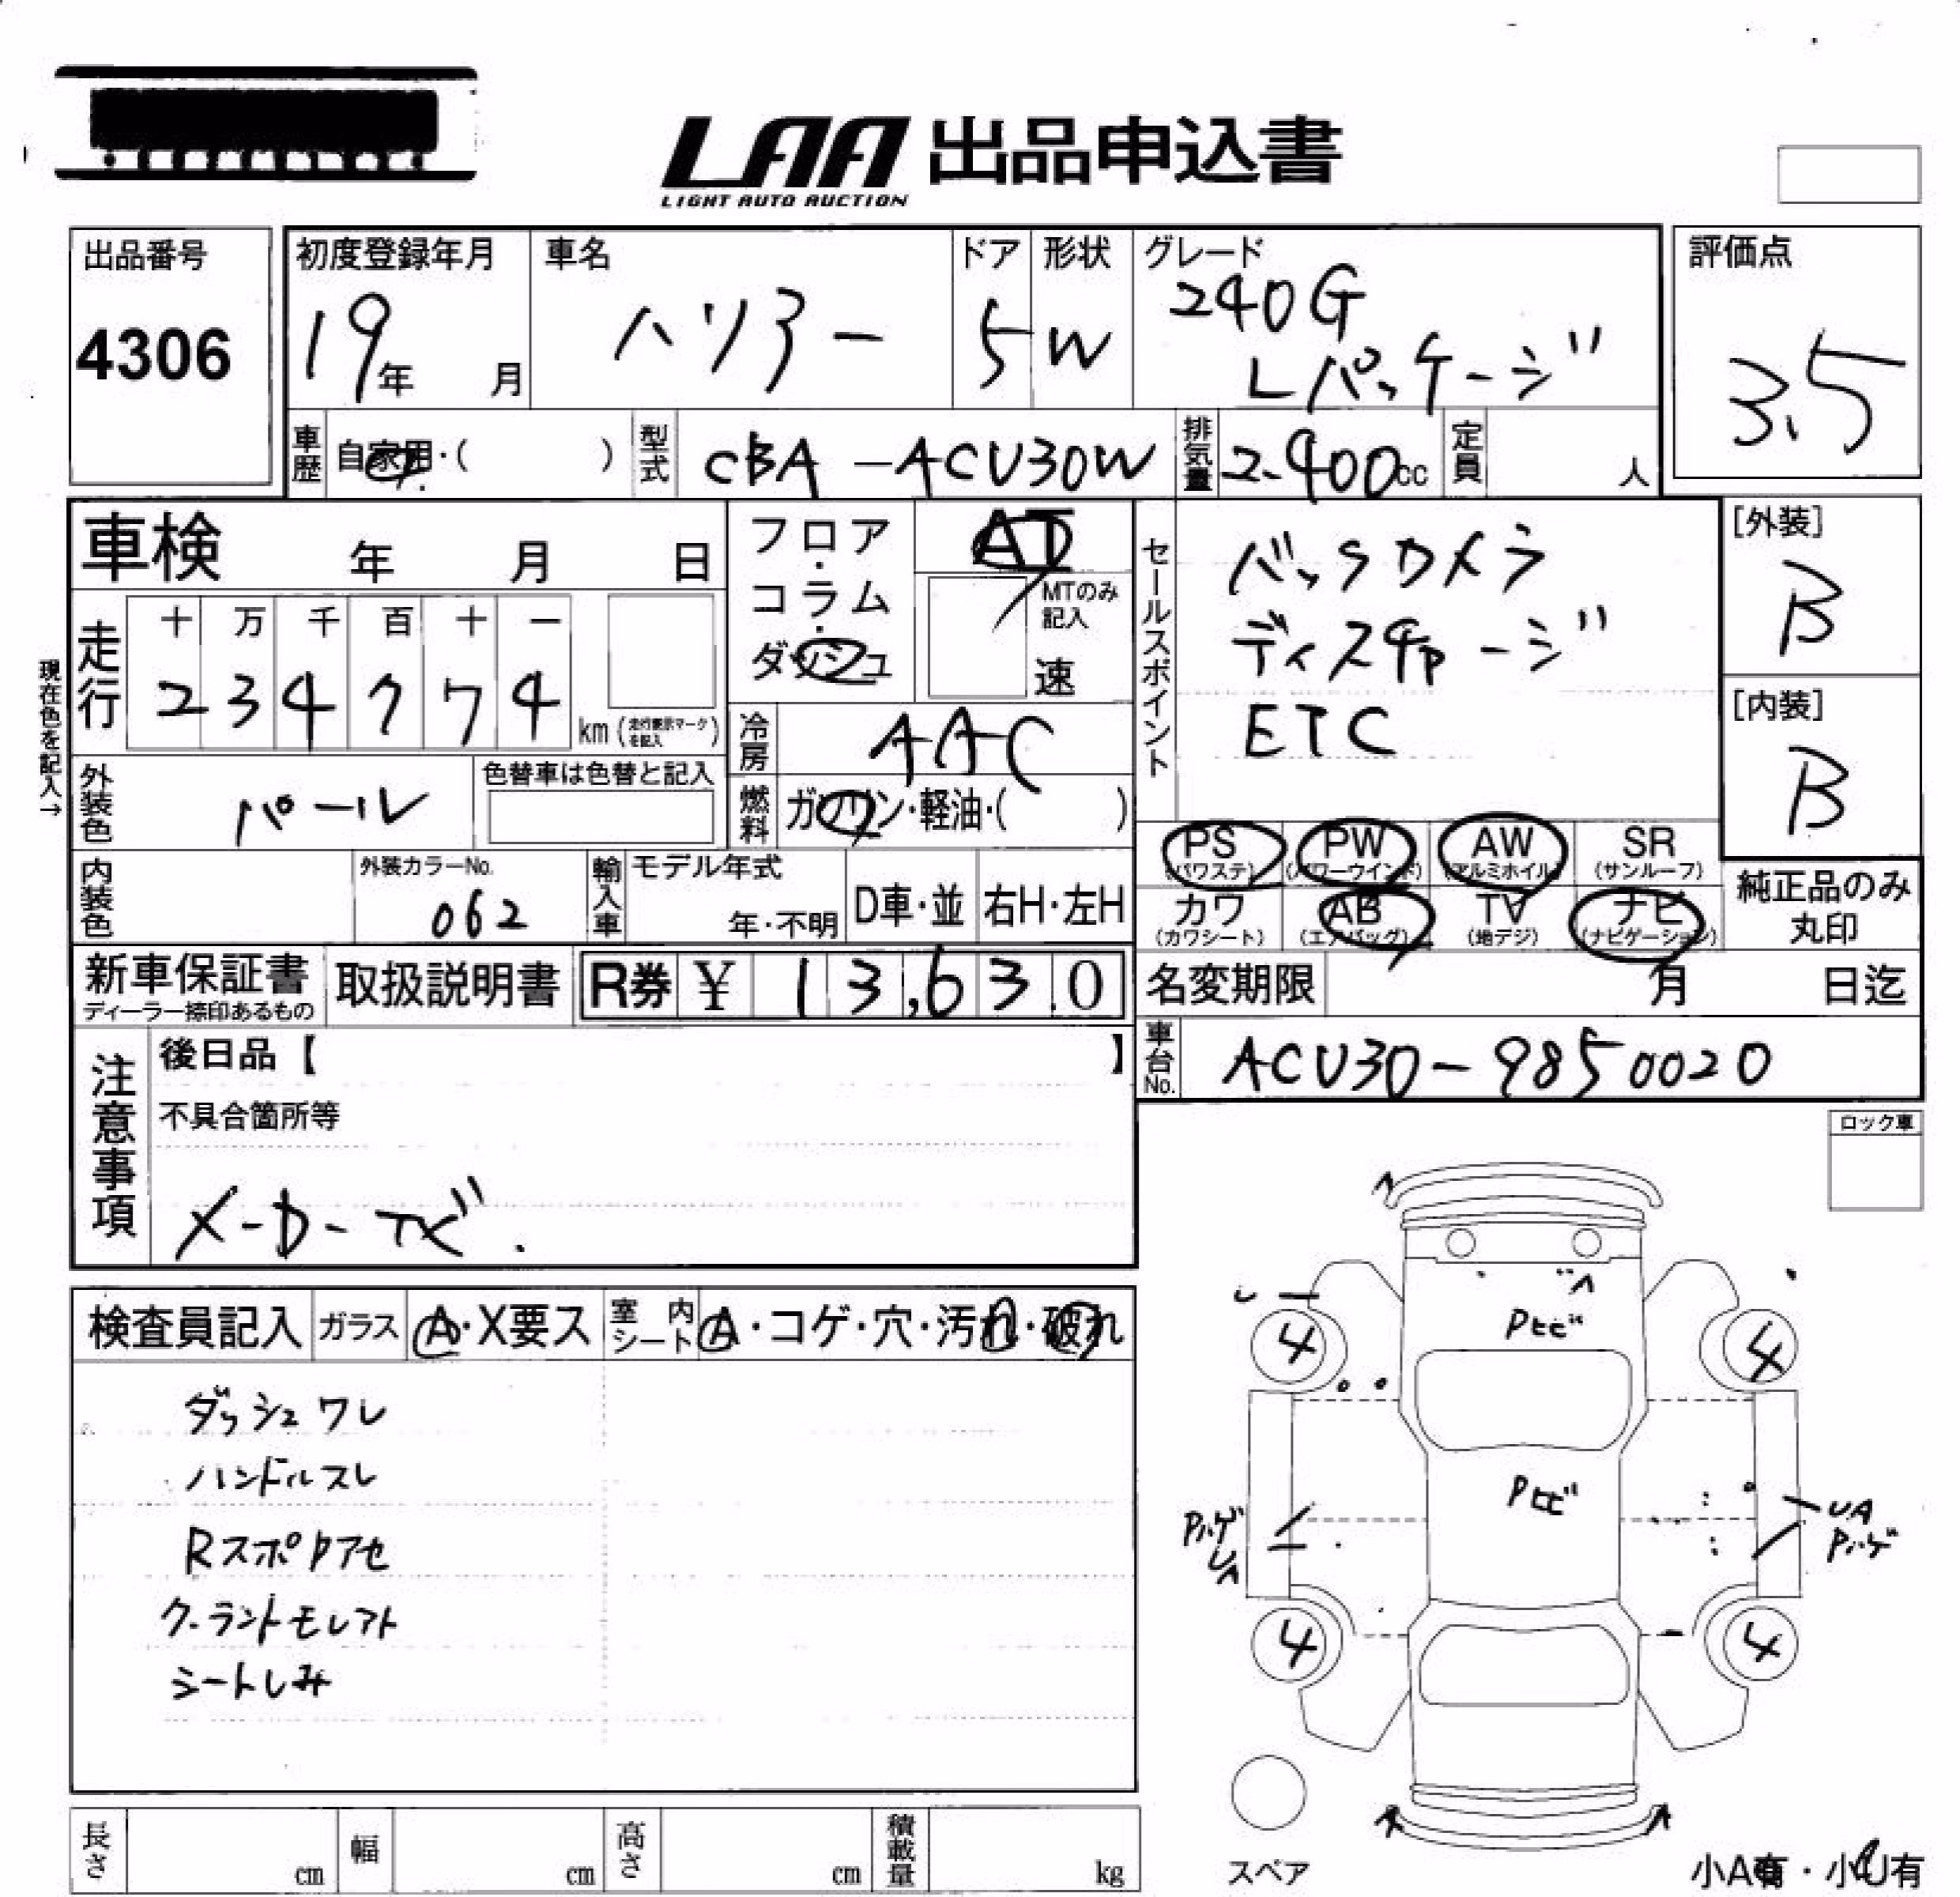 LAA 出品申込書
LIGHT AUTO AUCTION
出品番号
4306
初度登録年月
19年 月
車名
ハリアー
ドア
5
形状
W
グレード
240G
Lパッケージ
評価点
3.5
車歴 自家用・( )
型式 CBA-ACU30W
排気量 2400cc
定員 人
車検 年 月 日
現在色を記入→
走行
十 万 千 百 十 一
2 3 4 7 7 4 km (走行表示マークを記入)
フロア・コラム・ダッシュ
AT
MTのみ記入
速
冷房 AAC
燃料 ガソリン・軽油・( )
外装色 パール
色替車は色替と記入
内装色
外装カラーNo.
062
輸入車
モデル年式
年・不明
D車・並
右H・左H
セールスポイント
バックカメラ
ディスチャージ
ETC
[外装]
B
[内装]
B
PS PW AW SR
(パワステ) (パワーウインド) (アルミホイル) (サンルーフ)
カワ AB TV ナビ
(カワシート) (エアバッグ) (地デジ) (ナビゲーション)
純正品のみ
丸印
新車保証書
ディーラー捺印あるもの
取扱説明書
R券 ¥ 13,630
名変期限 月 日迄
車台No. ACU30-9850020
注意事項
後日品【 】
不具合箇所等
メーカーナビ.
ロック車
検査員記入
ガラス A・X要ス
室内シート A・コゲ・穴・汚れ・破れ
ダッシュワレ
ハンドルスレ
Rスポアセ
クーラントモレアト
シートしみ
Pヒビ
4 4
Pヒビ
Pハゲ
UA
UA
Pハゲ
4 4
スペア
小A有・小U有
長さ cm
幅 cm
高さ cm
積載量 kg